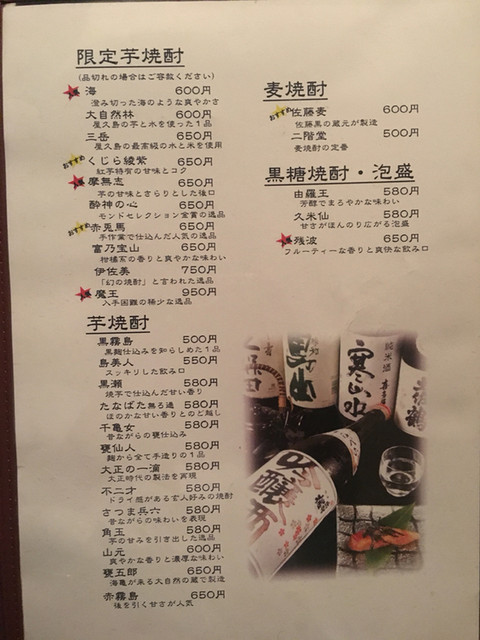 限定芋焼酎
(品切れの場合はご容赦ください)
海 600円
澄み切った海のような爽やかさ
大自然林 600円
屋久島の芋と水を使った1品
三岳 650円
屋久島の最高級の水と米を使用
おすすめ くじら綾紫 650円
紅芋特有の甘味とコク
摩無志 650円
芋の甘味とさらりとした後口
酔神の心 650円
モンドセレクション金賞の逸品
おすすめ 赤兎馬 650円
手作業で仕込んだ人気の逸品
富乃宝山 650円
柑橘系の香りと爽やかな味わい
伊佐美 750円
「幻の焼酎」と言われた逸品
魔王 950円
入手困難の稀少な逸品
芋焼酎
黒霧島 500円
黒麹仕込みを知らしめた1品
島美人 550円
スッキリした飲み口
黒瀬 580円
焼芋で仕込んだ甘い香り
たなばた無ろ過 580円
ほのかな甘い香りとのど越し
千亀女 580円
昔ながらの甕仕込み
甕仙人 580円
麹から全て手造りの1品
大正の一滴 580円
大正時代の製法を再現
不二才 580円
ドライ感がある玄人好みの焼酎
さつま兵六 580円
昔ながらの味わいを表現
角玉 580円
芋の甘みを引き出した逸品
山元 600円
爽やかな香りと濃厚な味わい
甕五郎 650円
海亀が来る大自然の蔵で製造
赤霧島 650円
後を引く甘さが人気
麦焼酎
おすすめ 佐藤麦 600円
佐藤黒の蔵元が製造
二階堂 500円
麦焼酎の定番
黒糖焼酎・泡盛
由羅王 580円
芳醇でまろやかな味わい
久米仙 580円
甘さがほんのり広がる泡盛
残波 650円
フルーティーな香りと爽快な飲み口
純米酒
寒山水
吟醸酒